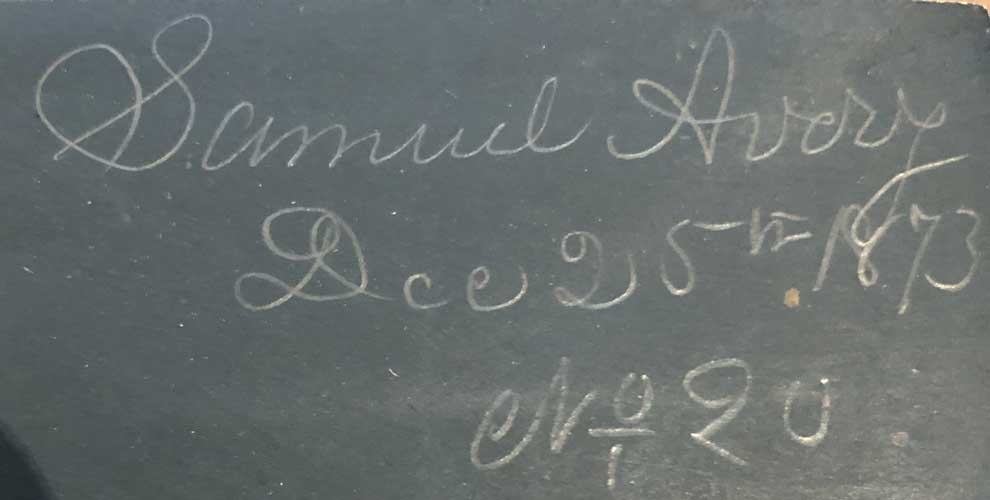 Samuel Avery
Dec 25th 1873
No 20